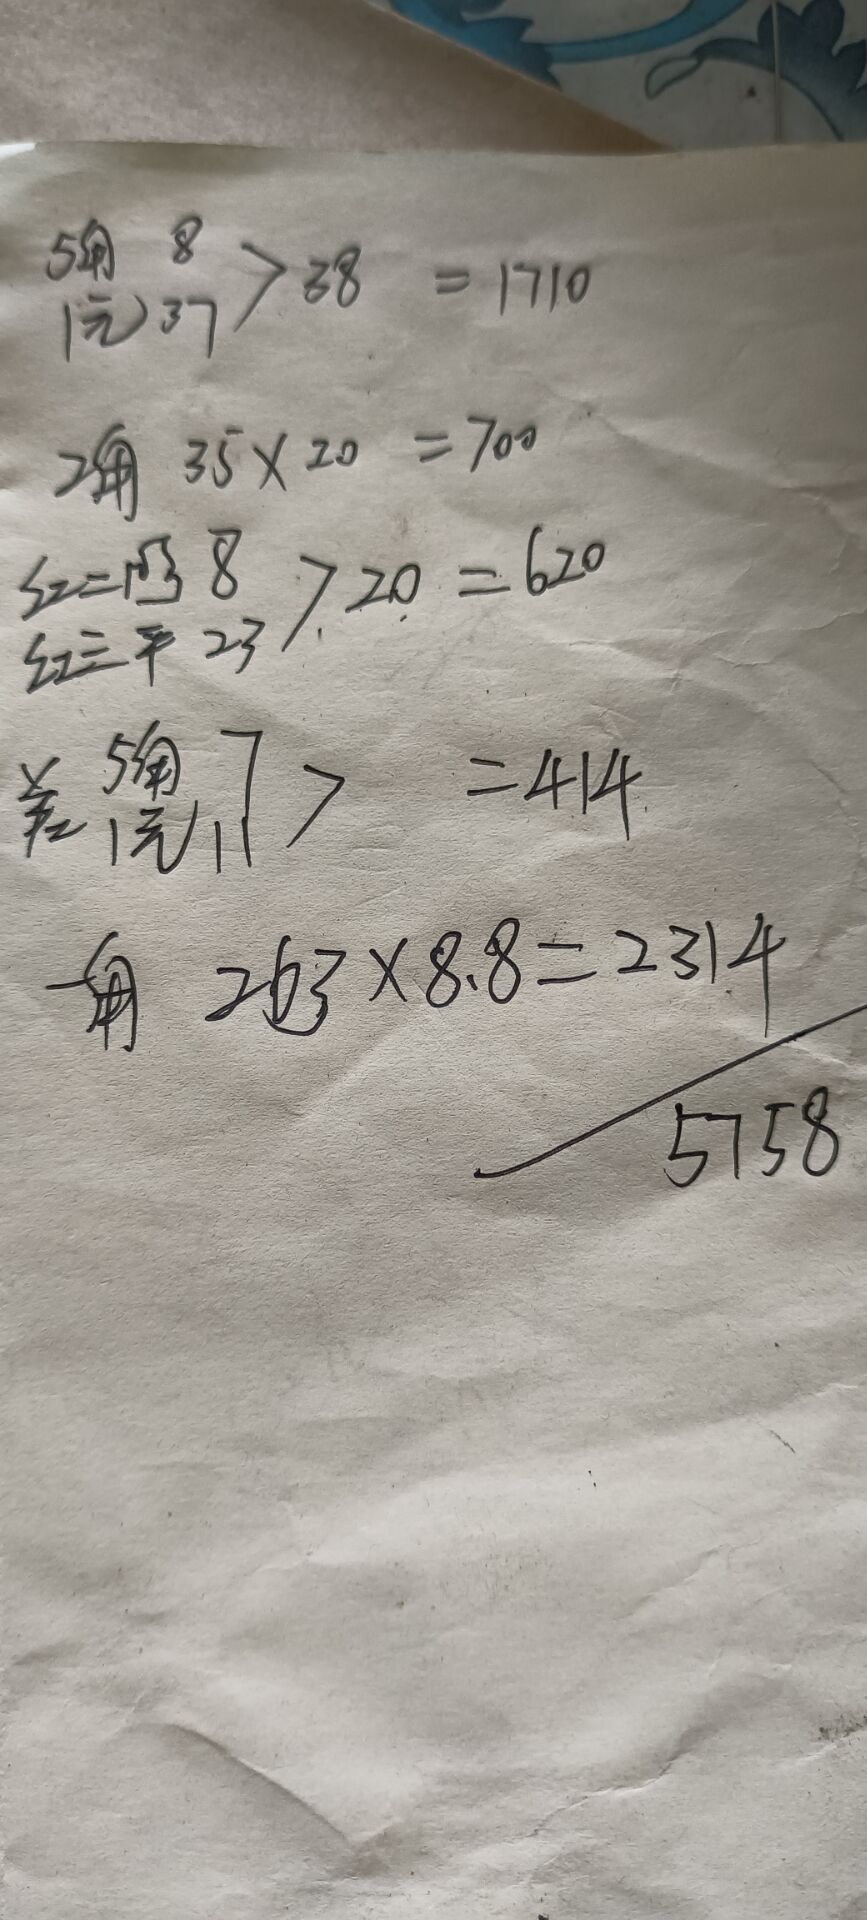 5角 8
1元 37 > 38 = 1710
2角 35×20 = 700
红二凹 8
红三平 23 > 20 = 620
差 5角 7
1元 11 > = 414
一角 263×8.8=2314
5758